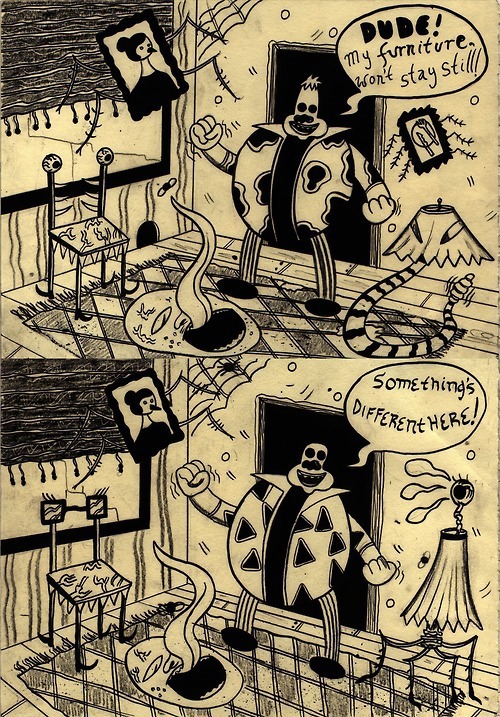 DUDE!
My furniture
won't stay still!
Something's
DIFFERENT HERE!